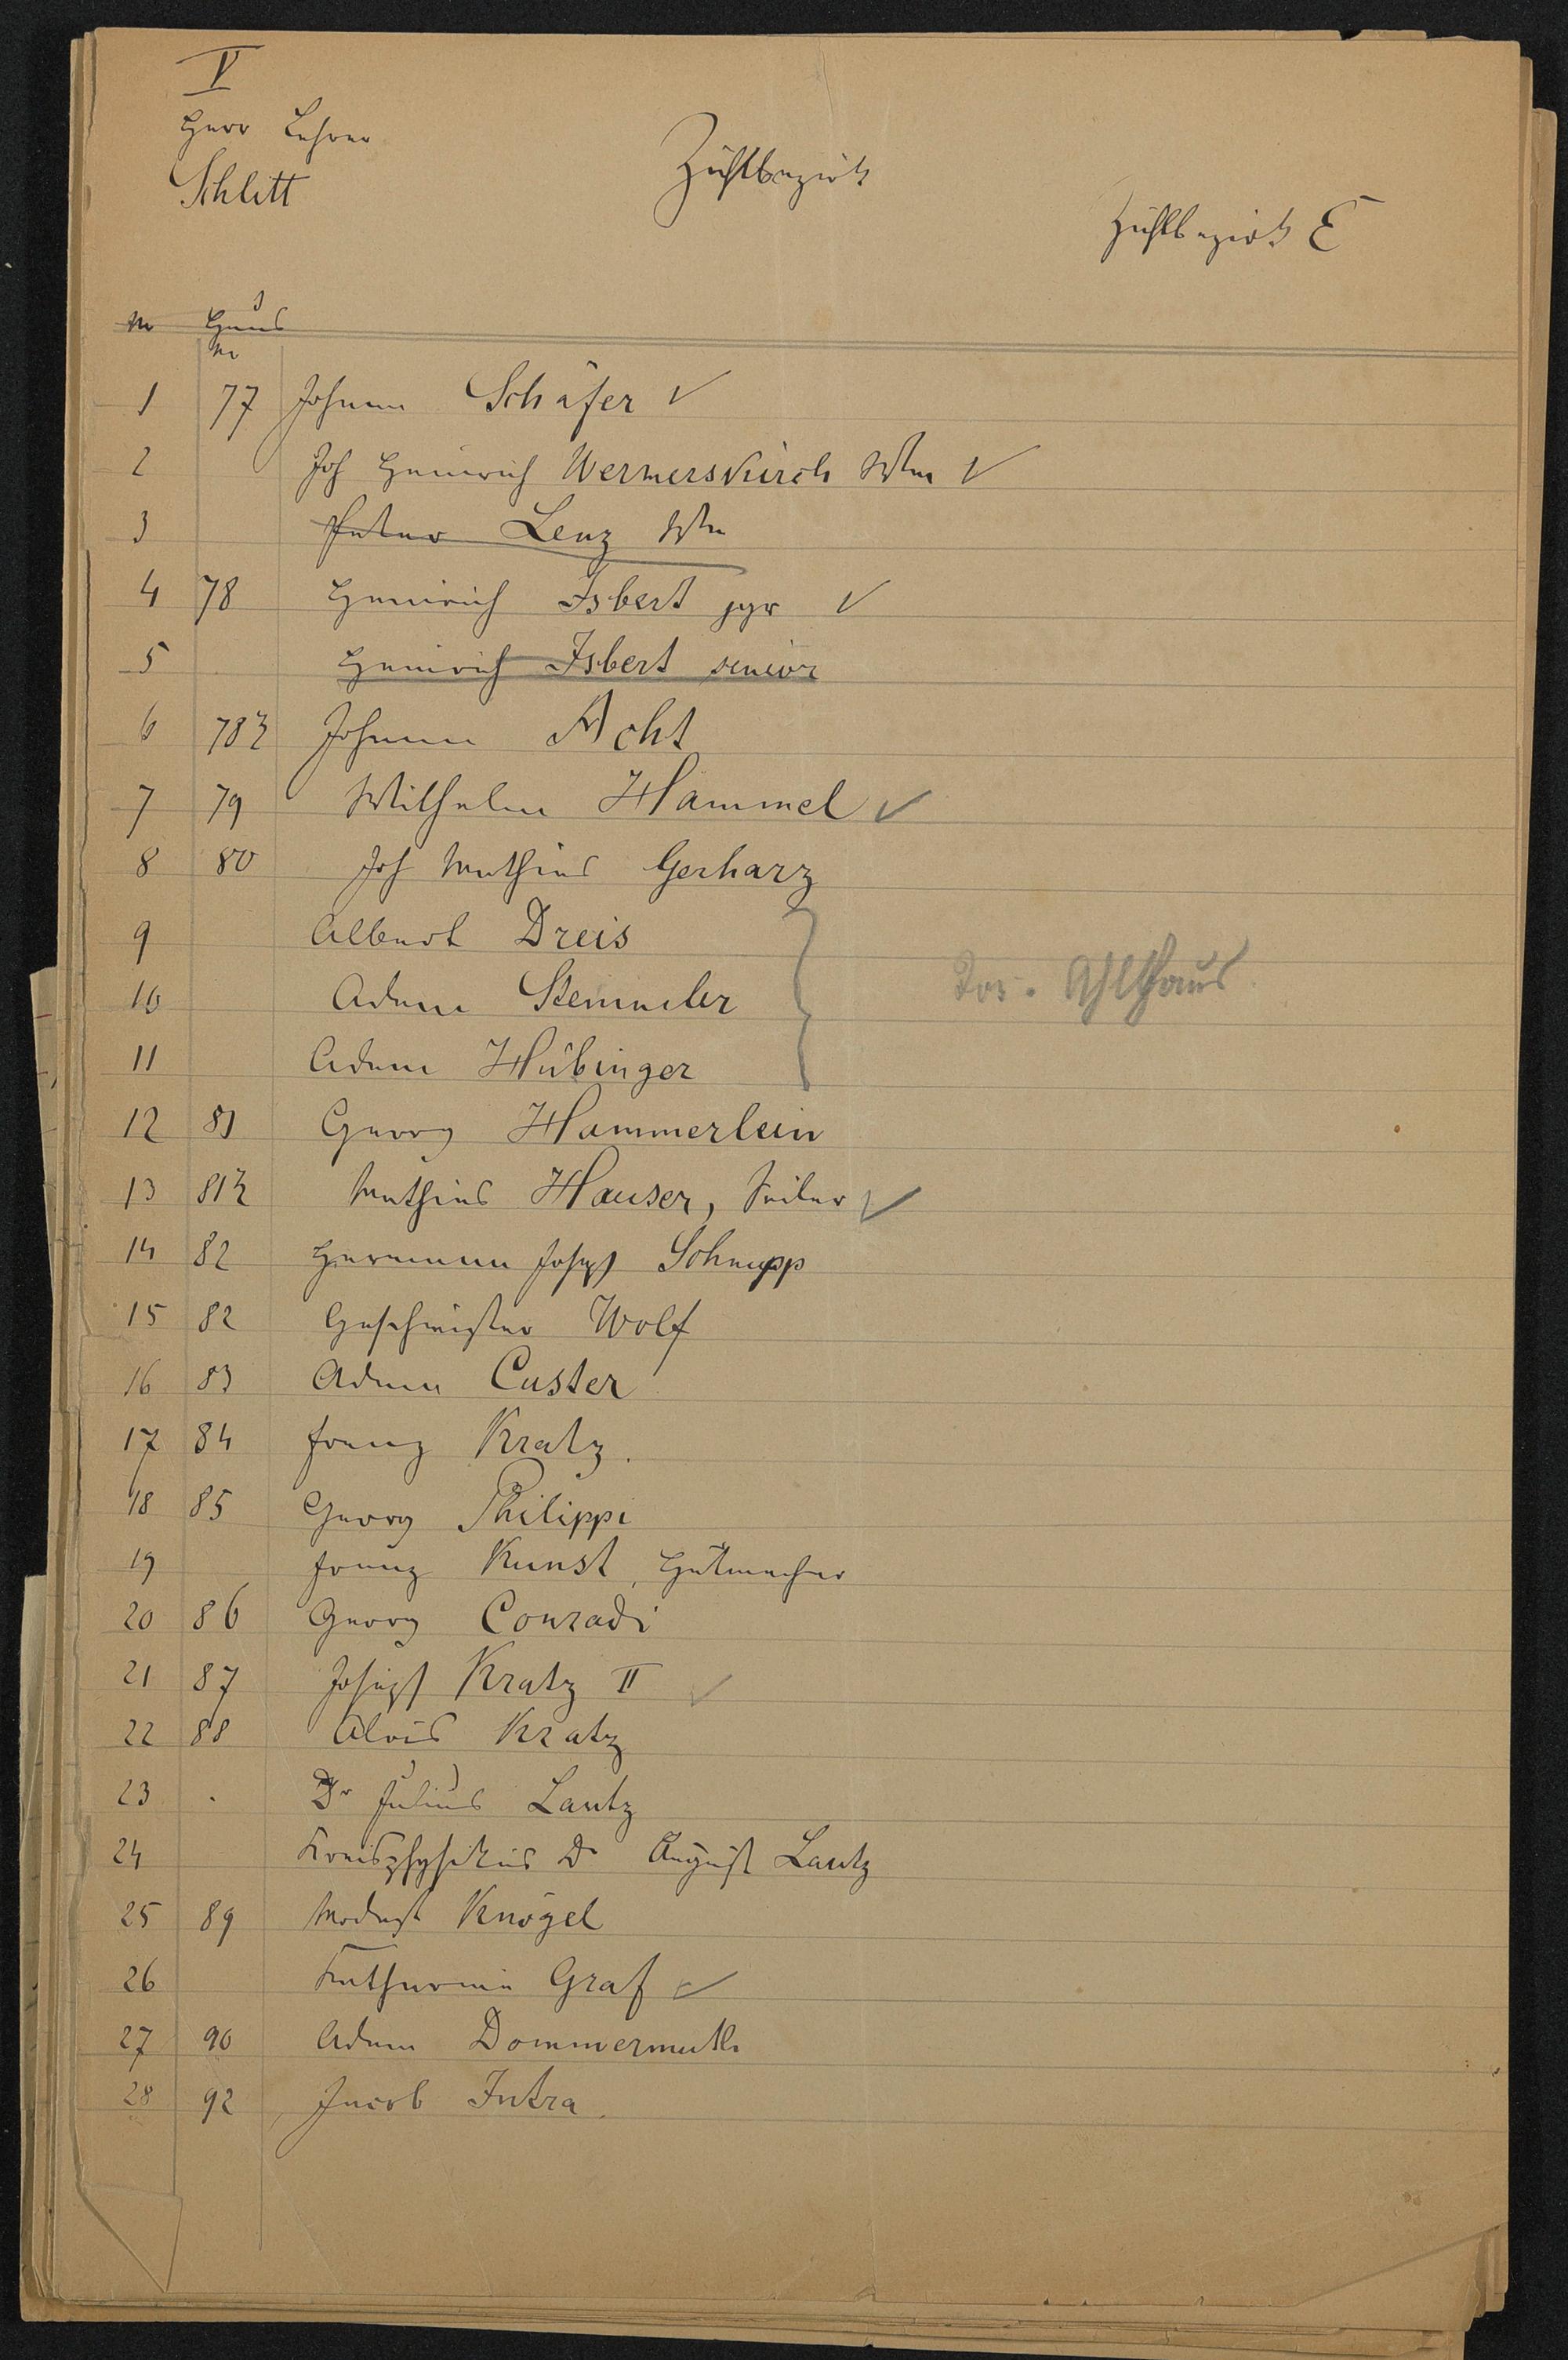 V
Herr Lehrer
Schlitt
Zählbezirk
Zählbezirk E
Nr Haus Nr
1 77 Johann Schäfer ✓
2 Joh Heinrich Wermerskirch Wtw ✓
3 Peter Lenz Wtw
4 78 Heinrich Isbert jgr ✓
5 Heinrich Isbert senior
6 78½ Johann Acht
7 79 Wilhelm Hammel ✓
8 80 Joh Mathias Gerharz
9 Albert Dreis
10 Adam Stemmler
Jos. Ahlhaus
11 Adam Hübinger
12 81 Georg Hammerlein
13 81½ Mathias Hauser, Seiler ✓
14 82 Hermann Joseph Schnupp
15 82 Geschwister Wolf
16 83 Adam Custer
17 84 Franz Kratz.
18 85 Georg Philippi
19 Franz Kunst, Hutmacher
20 86 Georg Conradi
21 87 Joseph Kratz II ✓
22 88 Alois Kratz
23 . Dr Julius Lantz
24 Kreisphysikus Dr August Lantz
25 89 Modest Knögel
26 Katharina Graf ✓
27 90 Adam Dommermuth
28 92 Jacob Intra